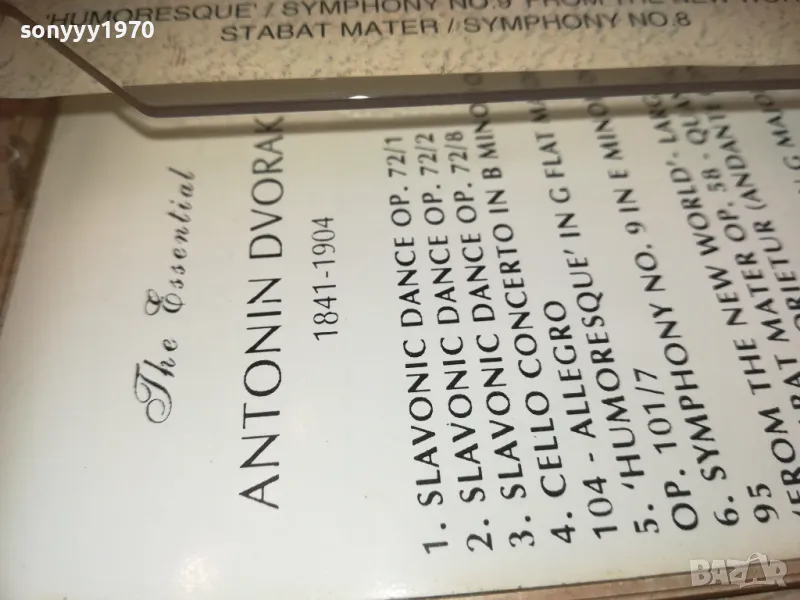 sonyyy1970
'HUMORESQUE' / SYMPHONY NO.9 'FROM THE NEW
STABAT MATER / SYMPHONY NO.8
The Essential
ANTONIN DVORAK
1841-1904
1. SLAVONIC DANCE OP. 72/1
2. SLAVONIC DANCE OP. 72/2
3. SLAVONIC DANCE OP. 72/8
4. CELLO CONCERTO IN B MINO
104 - ALLEGRO
5. 'HUMORESQUE' IN G FLAT MA
OP. 101/7
6. SYMPHONY NO. 9 IN E MINO
95 'FROM THE NEW WORLD'- LARG
MATER OP. 58 - QUAN
(ANDANTE
BAZAR